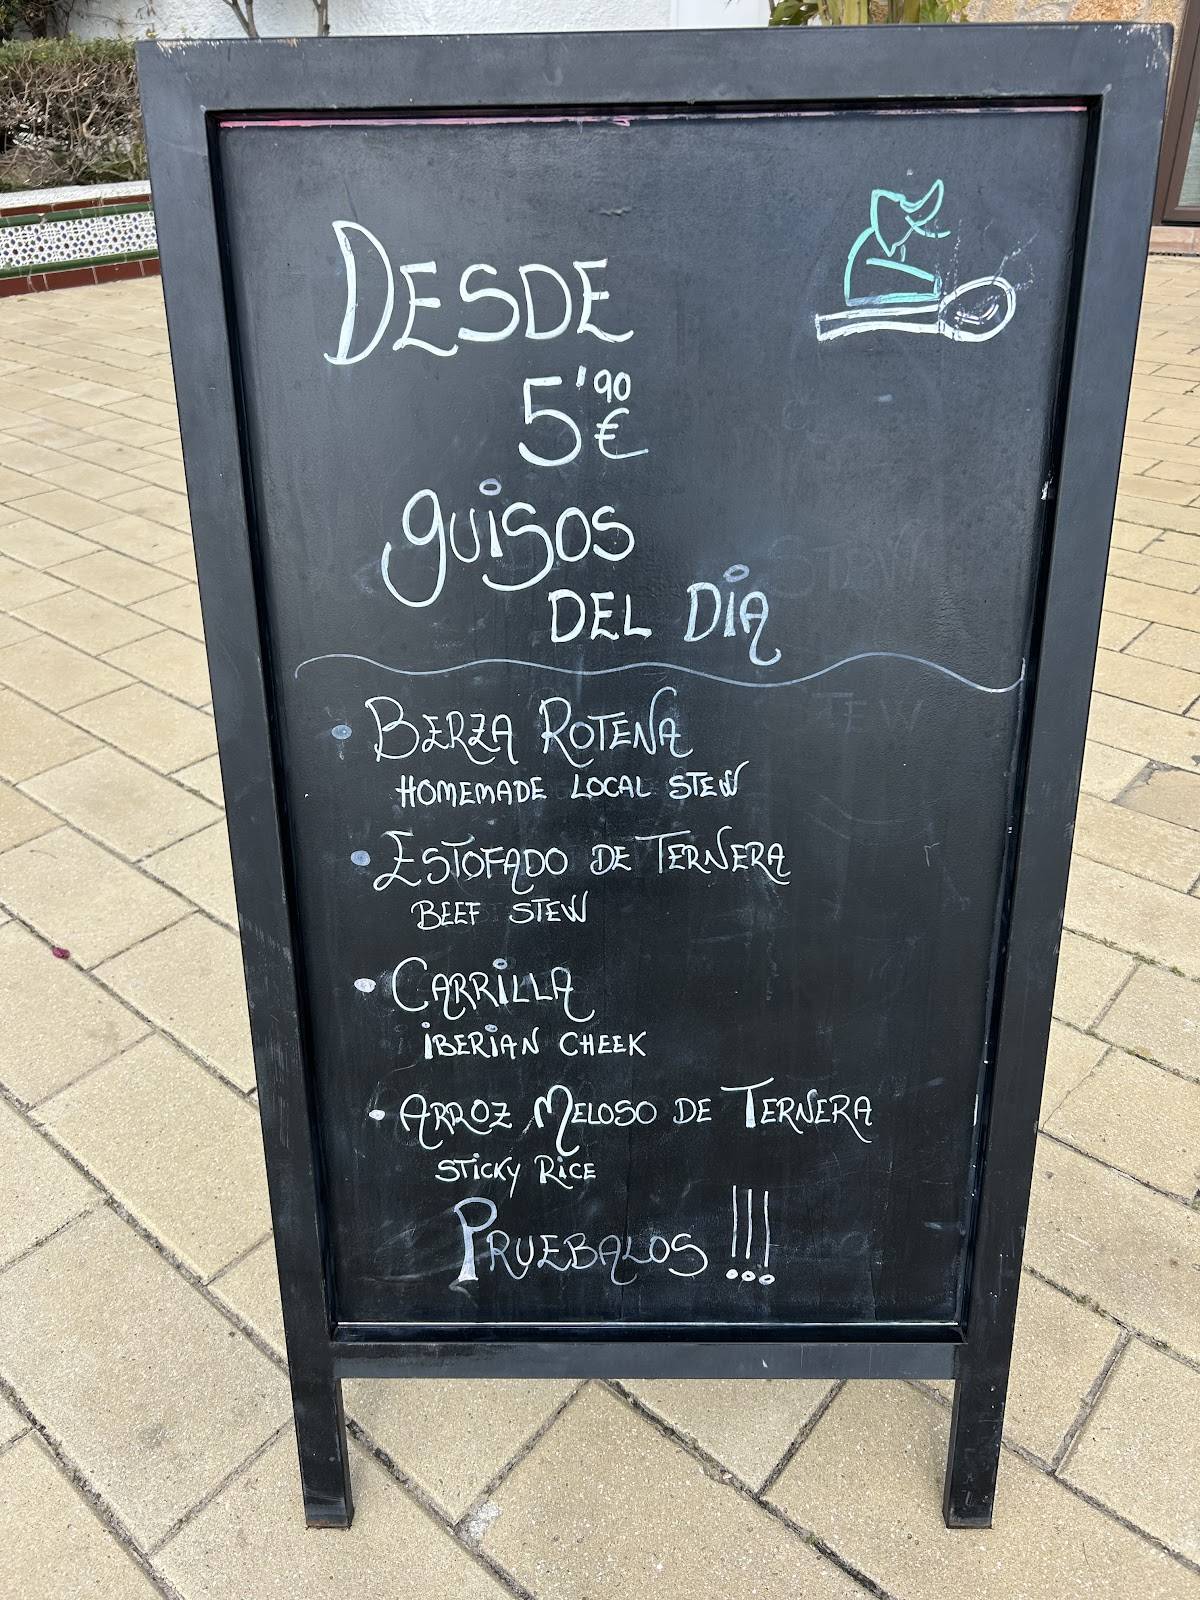 DESDE
5'90
€
guisos
DEL DiA
BERZA ROTENA
HOMEMADE LOCAL STEW
ESTOFADO DE TERNERA
BEEF STEW
CARRiLLA
iBERiAN CHEEK
ARROZ MELOSO DE TERNERA
STiCKY RiCE
PRUEBALOS !!!